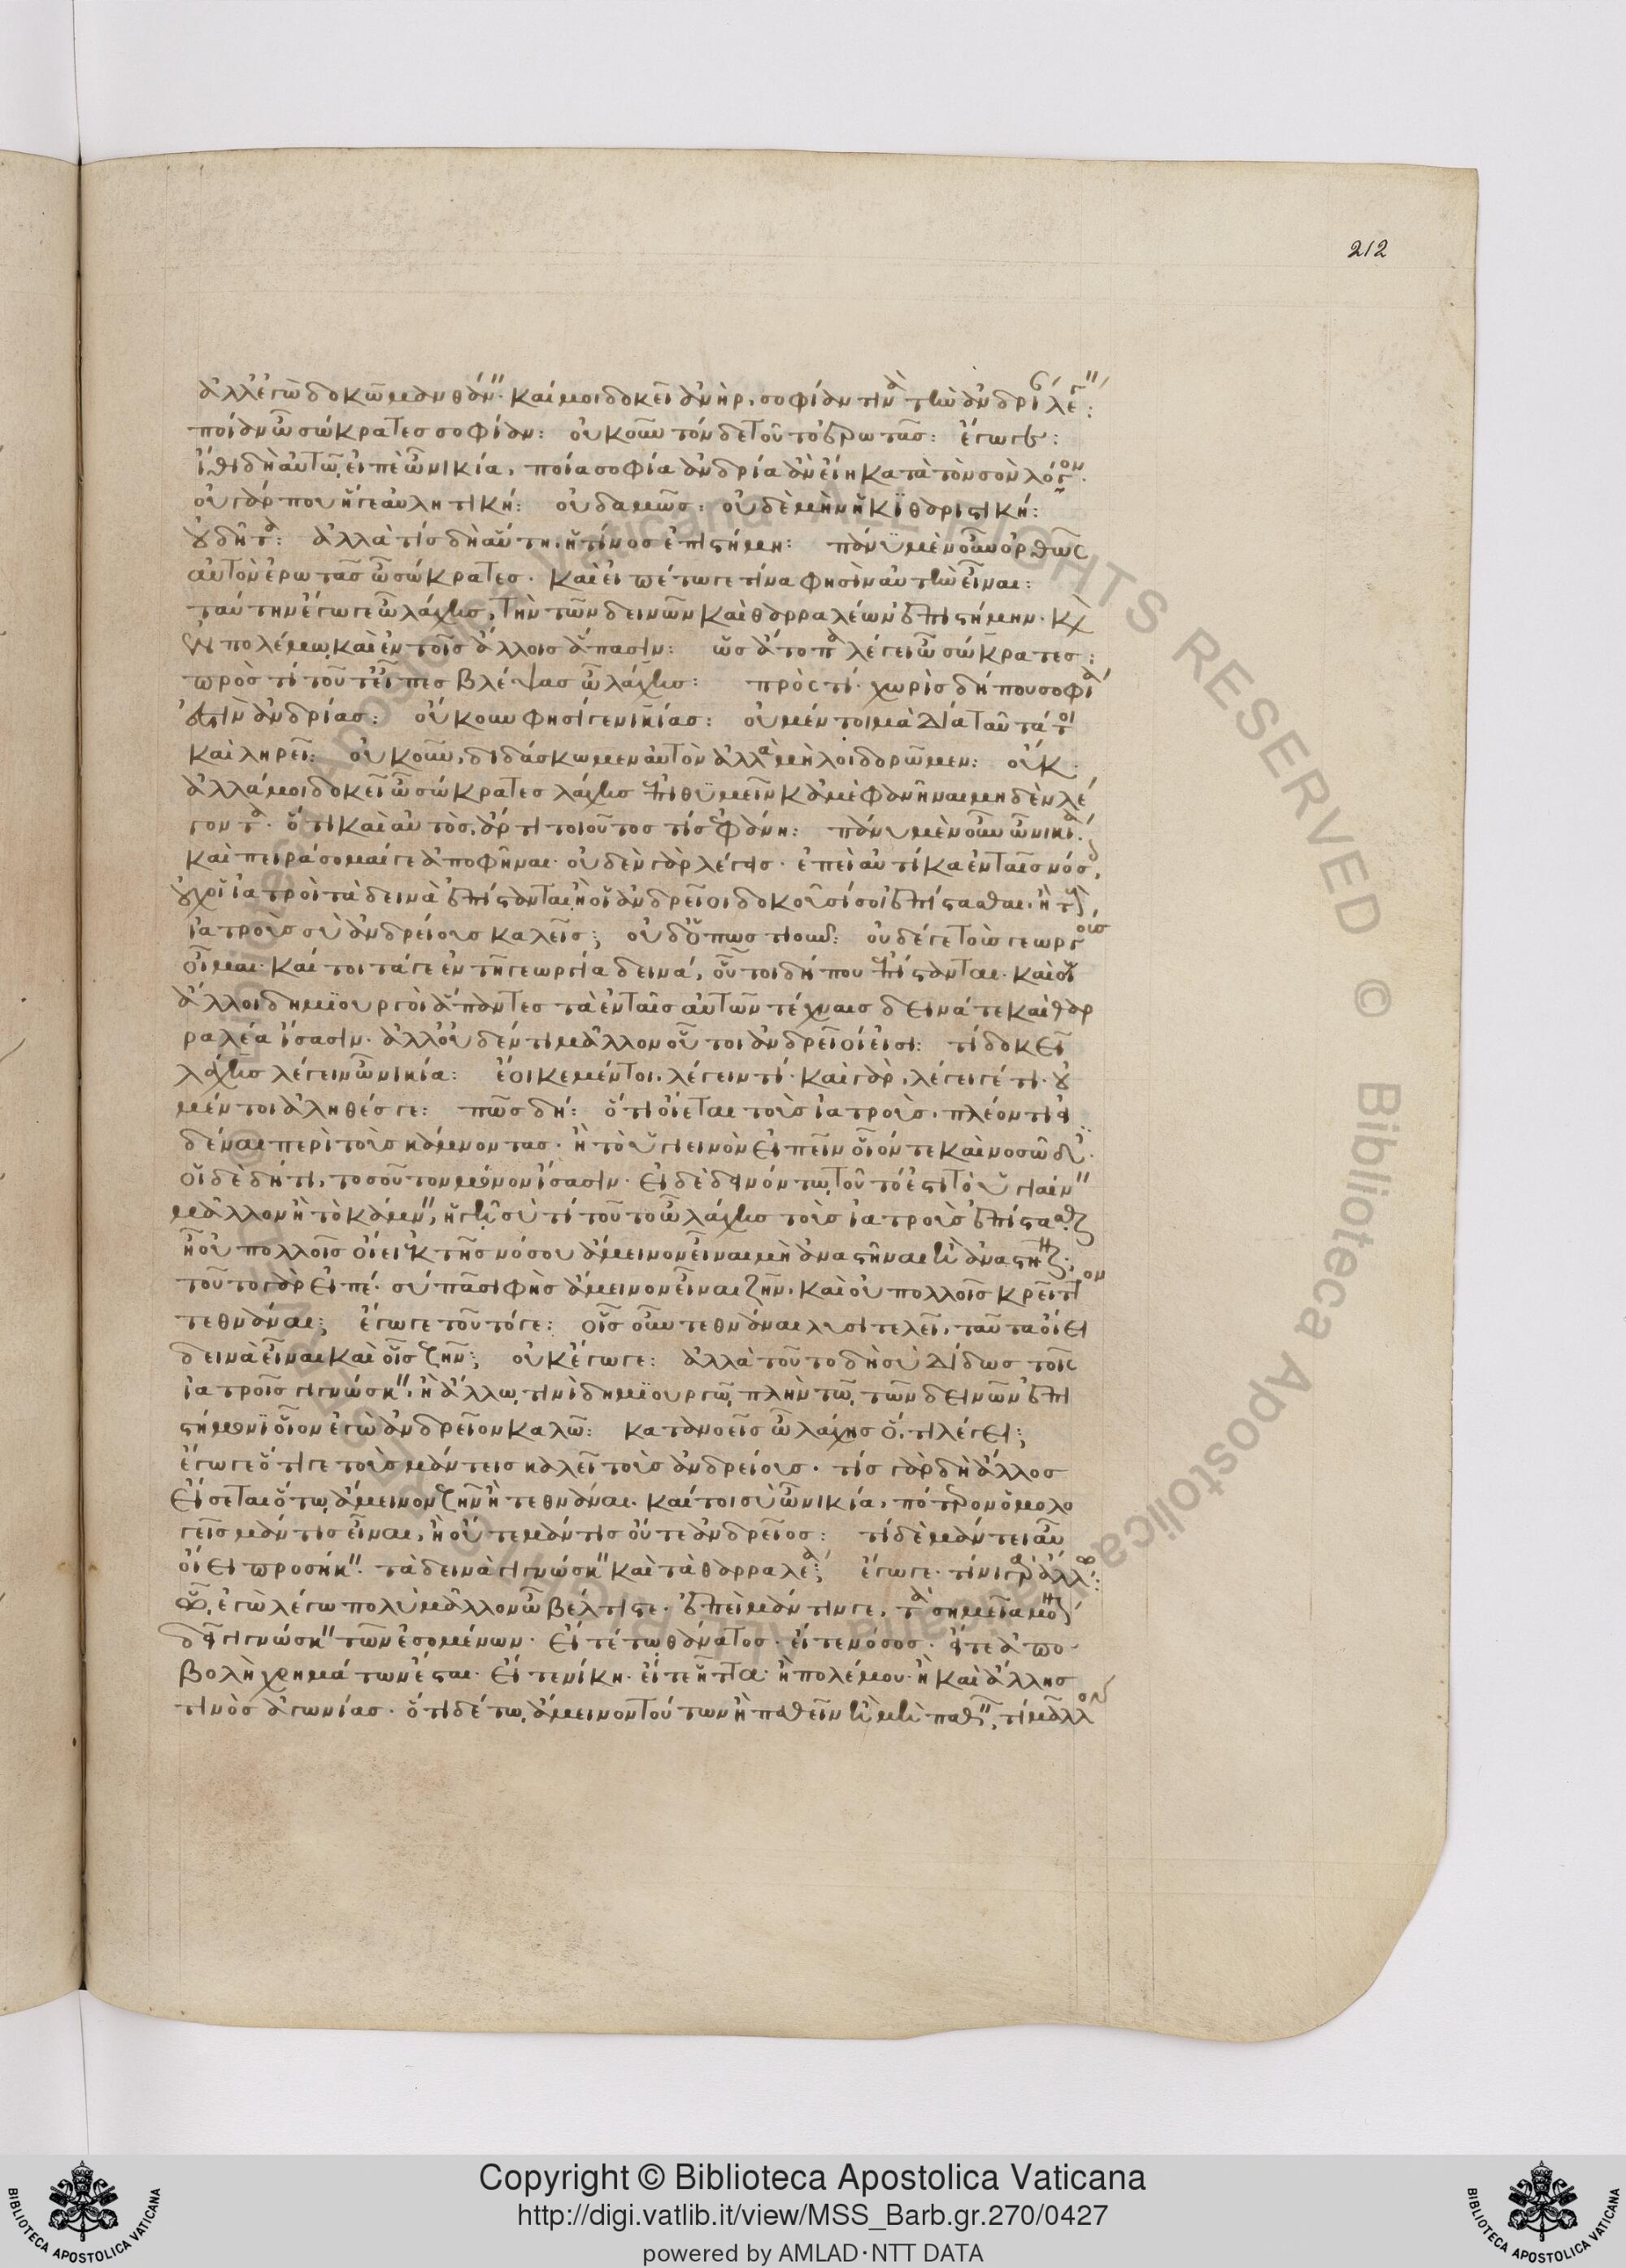 212
ἀλλ' ἐγὼ δοκῶ μανθάν· καί μοι δοκεῖ ἀνὴρ, σοφίαν τινὰ τὴν ἀνδρί λέγ:
ποίαν ὦ σώκρατες σοφίαν: οὐκοῦν τόνδε τοῦτο ἐρωτᾶς: ἔγωγε:
ἴθι δὴ αὐτῶ, εἰπὲ ὦ νικία, ποία σοφία ἀνδρία ἂν εἴη κατὰ τὸν σὸν λόγον.
οὐ γάρ που ἥ γε αὐλητική: οὐδαμῶς: οὐδὲ μὴν ἡ κϊθαριστική:
οὐ δῆτα: ἀλλὰ τίς δὴ αὕτη, ἢ τίνος ἐπιστήμη: πάνϋ μὲν οὖν ὀρθῶς
αὐτὸν ἐρωτᾶς ὦ σώκρατες. καὶ εἰπέτω γε τίνα φησὶν αὐτὴν εἶναι:
ταύτην ἔγωγε ὦ λάχης, τὴν τῶν δεινῶν καὶ θαρραλέων ἐπιστήμην. καὶ
ἐν πολέμω, καὶ ἐν τοῖς ἄλλοις ἅπασιν: ὡς ἄτοπα λέγει ὦ σώκρατες:
πρὸς τί τοῦτ' εἶπες βλέψας ὦ λάχης: πρὸς τί. χωρὶς δήπου σοφία
ἐστὶν ἀνδρίας: οὔκουν φησί γε νικίας: οὐ μέντοι μὰ Δία ταῦτά τοι
καὶ ληρεῖ: οὐκοῦν, διδάσκωμεν αὐτὸν ἀλλὰ μὴ λοιδορῶμεν: οὔκ.
ἀλλά μοι δοκεῖ ὦ σώκρατες λάχης ἐπιθϋμεῖν κἀμὲ φανῆναι μηδὲν λέ
γοντα. ὅτι καὶ αὐτὸς, ἄρτι τοιοῦτος τίς ἐφάνη: πάνυ μὲν οὖν ὦ νικία.
καὶ πειράσομαί γε ἀποφῆναι. οὐδὲν γὰρ λέγεις. ἐπεὶ αὐτίκα ἐν ταῖς νόσ,
οὐχ οἱ ἰατροὶ τὰ δεινὰ ἐπίστανται, ἢ οἱ ἀνδρεῖοι δοκοῦσί σοι ἐπίστασθαι, ἢ τοὺς
ἰατροὺς σὺ ἀνδρείους καλεῖς; οὐδ' ὅπως τιοῦν: οὐδέ γε τοὺς γεωργοὺς
οἶμαι. καί τοι τά γε ἐν τῆ γεωργία δεινά, οὗτοι δήπου ἐπίστανται. καὶ οἱ
ἄλλοι δημϊουργοὶ ἅπαντες τὰ ἐν ταῖς αὑτῶν τέχναις δεινά τε καὶ θαρ
ραλέα ἴσασιν. ἀλλ' οὐδέν τι μᾶλλον οὗτοι ἀνδρεῖοί εἰσι: τί δοκεῖ
λάχης λέγειν ὦ νικία: ἔοικε μέντοι, λέγειν τί. καὶ γὰρ, λέγει γέ τι. οὐ
μέντοι ἀληθές γε: πῶς δή: ὅτι οἴεται τοὺς ἰατροὺς, πλέον τι εἰ
δέναι περὶ τοὺς κάμνοντας. ἢ τὸ ὑγιεινὸν εἰπεῖν οἷόν τε καὶ νοσῶδες.
οἱ δὲ δή τι, τοσοῦτον μόνον ἴσασιν. εἰ δὲ δεινόν τω, τοῦτό ἐστι τὸ ὑγιαίν
μᾶλλον ἢ τὸ κάμν, ἡγῆ σὺ τί τοῦτο ὦ λάχης τοὺς ἰατροὺς ἐπίστασθαι
ἢ οὐ πολλοῖς οἴει ἐκ τῆς νόσου ἄμεινον εἶναι μὴ ἀναστῆναι ἢ ἀναστῆναι;
τοῦτο γὰρ εἰπέ. σὺ πᾶσι φὴς ἄμεινον εἶναι ζῆν. καὶ οὐ πολλοῖς κρεῖττον
τεθνάναι; ἔγωγε τοῦτό γε: οἷς οὖν τεθνάναι λυσιτελεῖ, ταῦτα οἴει
δεινὰ εἶναι καὶ οἷς ζῆν; οὐκ ἔγωγε: ἀλλὰ τοῦτο δὴ σὺ Δίδως τοῖς
ἰατροῖς γιγνώσκ, ἢ ἄλλω, τινὶ δημϊουργῶ, πλὴν τῶ, τῶν δεινῶν ἐπι
στήμονϊ οἷον ἐγὼ ἀνδρεῖον καλῶ: κατανοεῖς ὦ λάχης ὅ, τι λέγει;
ἔγωγε ὅτι γε τοὺς μάντεις καλεῖ τοὺς ἀνδρείους. τίς γὰρ δὴ ἄλλος
εἴσεται ὅτω, ἄμεινον ζῆν ἢ τεθνάναι. καί τοι σὺ ὦ νικία, πότερον ὁμολο
γεῖς μάντις εἶναι, ἢ οὔτε μάντις οὔτε ἀνδρεῖος: τί δὲ μάντει αὖ
οἴει προσήκ. τὰ δεινὰ γιγνώσκ καὶ τὰ θαρραλέα; ἔγωγε. τίνι γὰρ ἄλλω:
ὧ, ἐγὼ λέγω πολὺ μᾶλλον ὦ βέλτιστε. ἐπεὶ μάντιν γε, τὰ σημεῖα μόνον
δεῖ γιγνώσκ τῶν ἐσομένων. εἴτέ τω θάνατος. εἴτε νόσος. εἴτε ἀπο
βολὴ χρημάτων ἔσται. εἴτε νίκη. εἴτε ἧττα. ἢ πολέμου. ἢ καὶ ἄλλης
τινὸς ἀγωνίας. ὅτι δέ τω, ἄμεινον τούτων ἢ παθεῖν ἢ μὴ παθεῖν, τί μᾶλλον
Copyright © Biblioteca Apostolica Vaticana
http://digi.vatlib.it/view/MSS_Barb.gr.270/0427
powered by AMLAD·NTT DATA